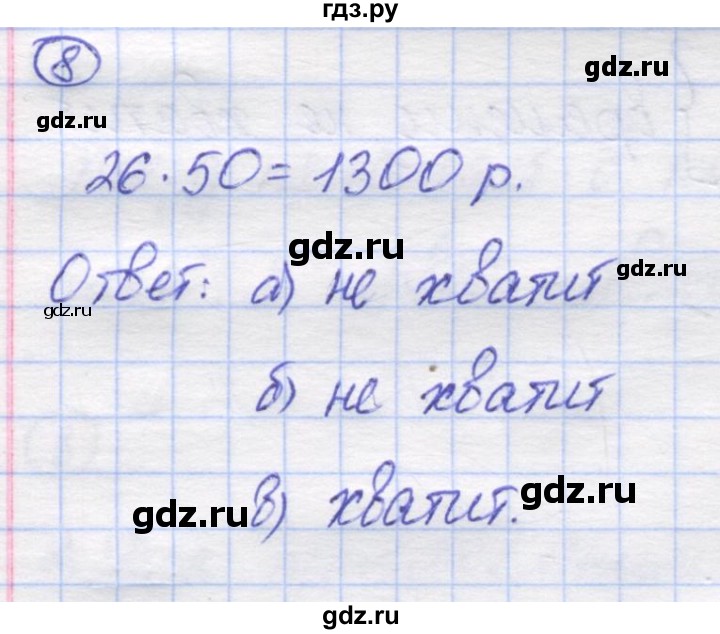 гдз.ру
8
gdz.ru
26·50=1300 р.
gdz.ru
Ответ: а) не хватит
gdz.ru
gdz.ru
б) не хватит
gdz.ru
в) хватит.
gdz.ru
gdz.ru